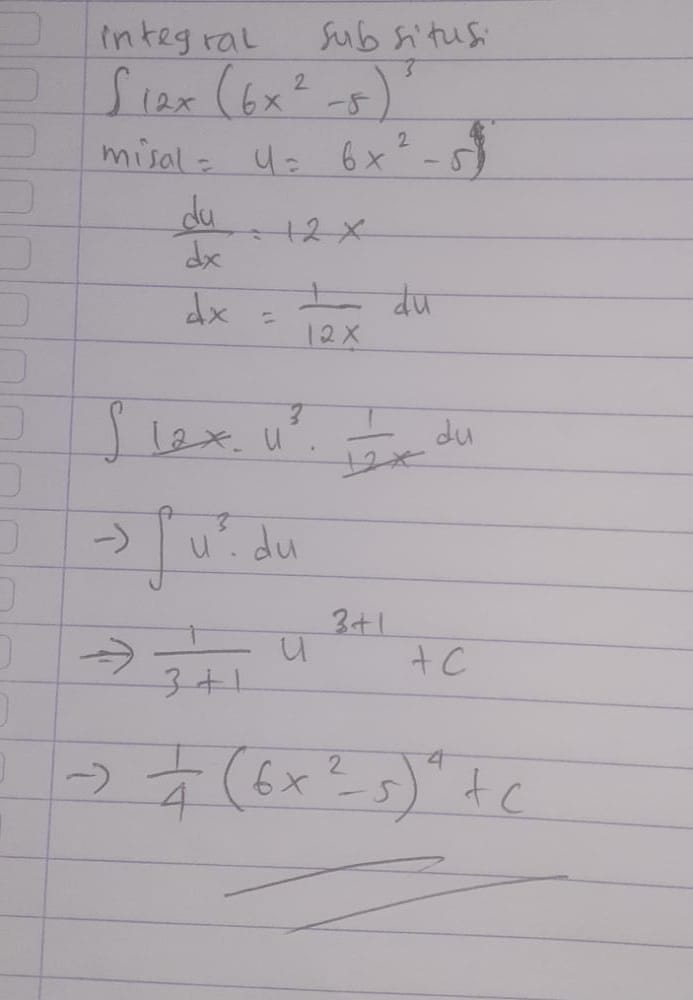 integral subsitusi
∫ 12x (6x² - 5)³
misal = u = 6x² - 5
du/dx = 12x
dx = 1/12x du
∫ 12x. u³. 1/12x du
→ ∫ u³. du
⇒ 1/3+1 u³⁺¹ + C
→ 1/4 (6x² - 5)⁴ + C